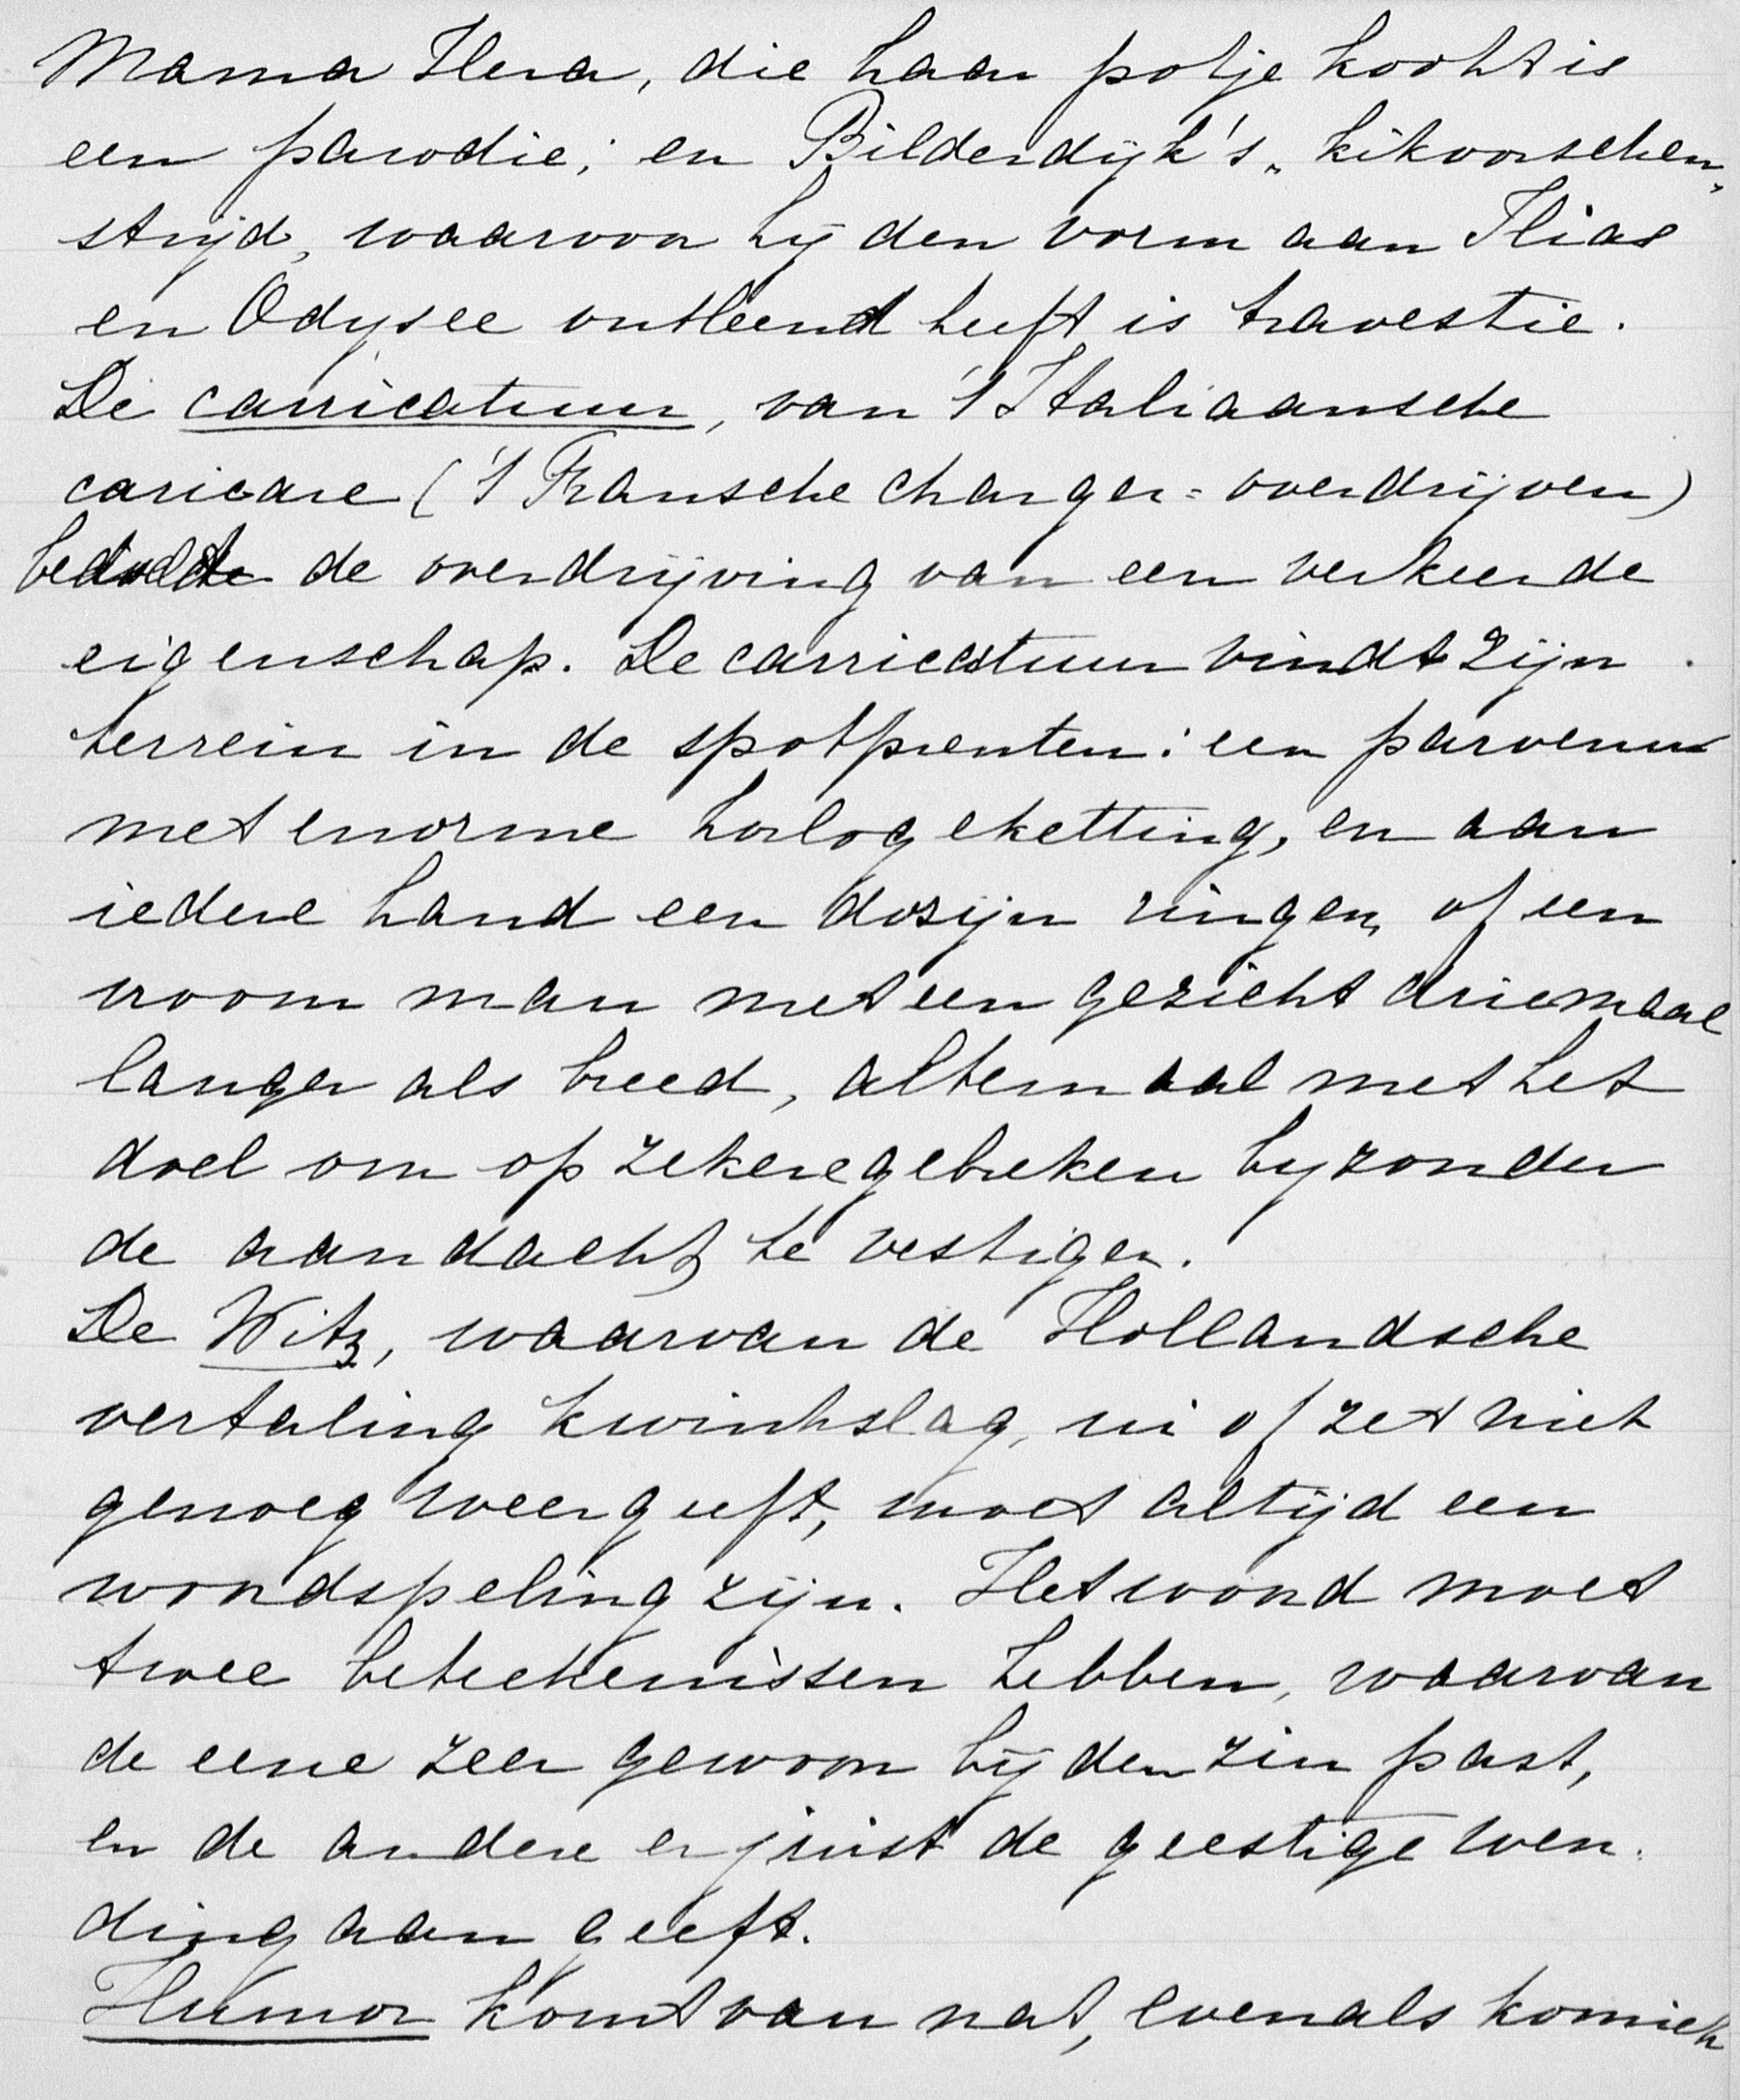 Mama Hera, die haar potje kookt is
een parodie; en Bilderdijk's „kikvorschen„
strijd, waarvoor hij den vorm aan Ilias
en Odysee ontleend heeft is travestie.
De carricatuur, van 't Italiaansche
caricare ('t Fransche charger = overdrijven)
beduidt de overdrijving van een verkeerde
eigenschap. De carricatuur vindt zijn
terrein in de spotprenten: een parvenu
met enorme horlogeketting, en aan
iedere hand een dozijn ringen, of een
vroom man met een gezicht driemaal
langer als breed, altemaal met het
doel om op zekere gebreken byzonder
de aandacht te vestigen.
De Witz, waarvan de Hollandsche
vertaling kwinkslag, ui of zet niet
genoeg weergeeft, moet altijd een
woordspeling zijn. Het woord moet
twee beteekenissen hebben, waarvan
de eene zeer gewoon bij den zin past,
en de andere er juist de geestige wen-
ding aan geeft.
Humor komt van nat, evenals komiek